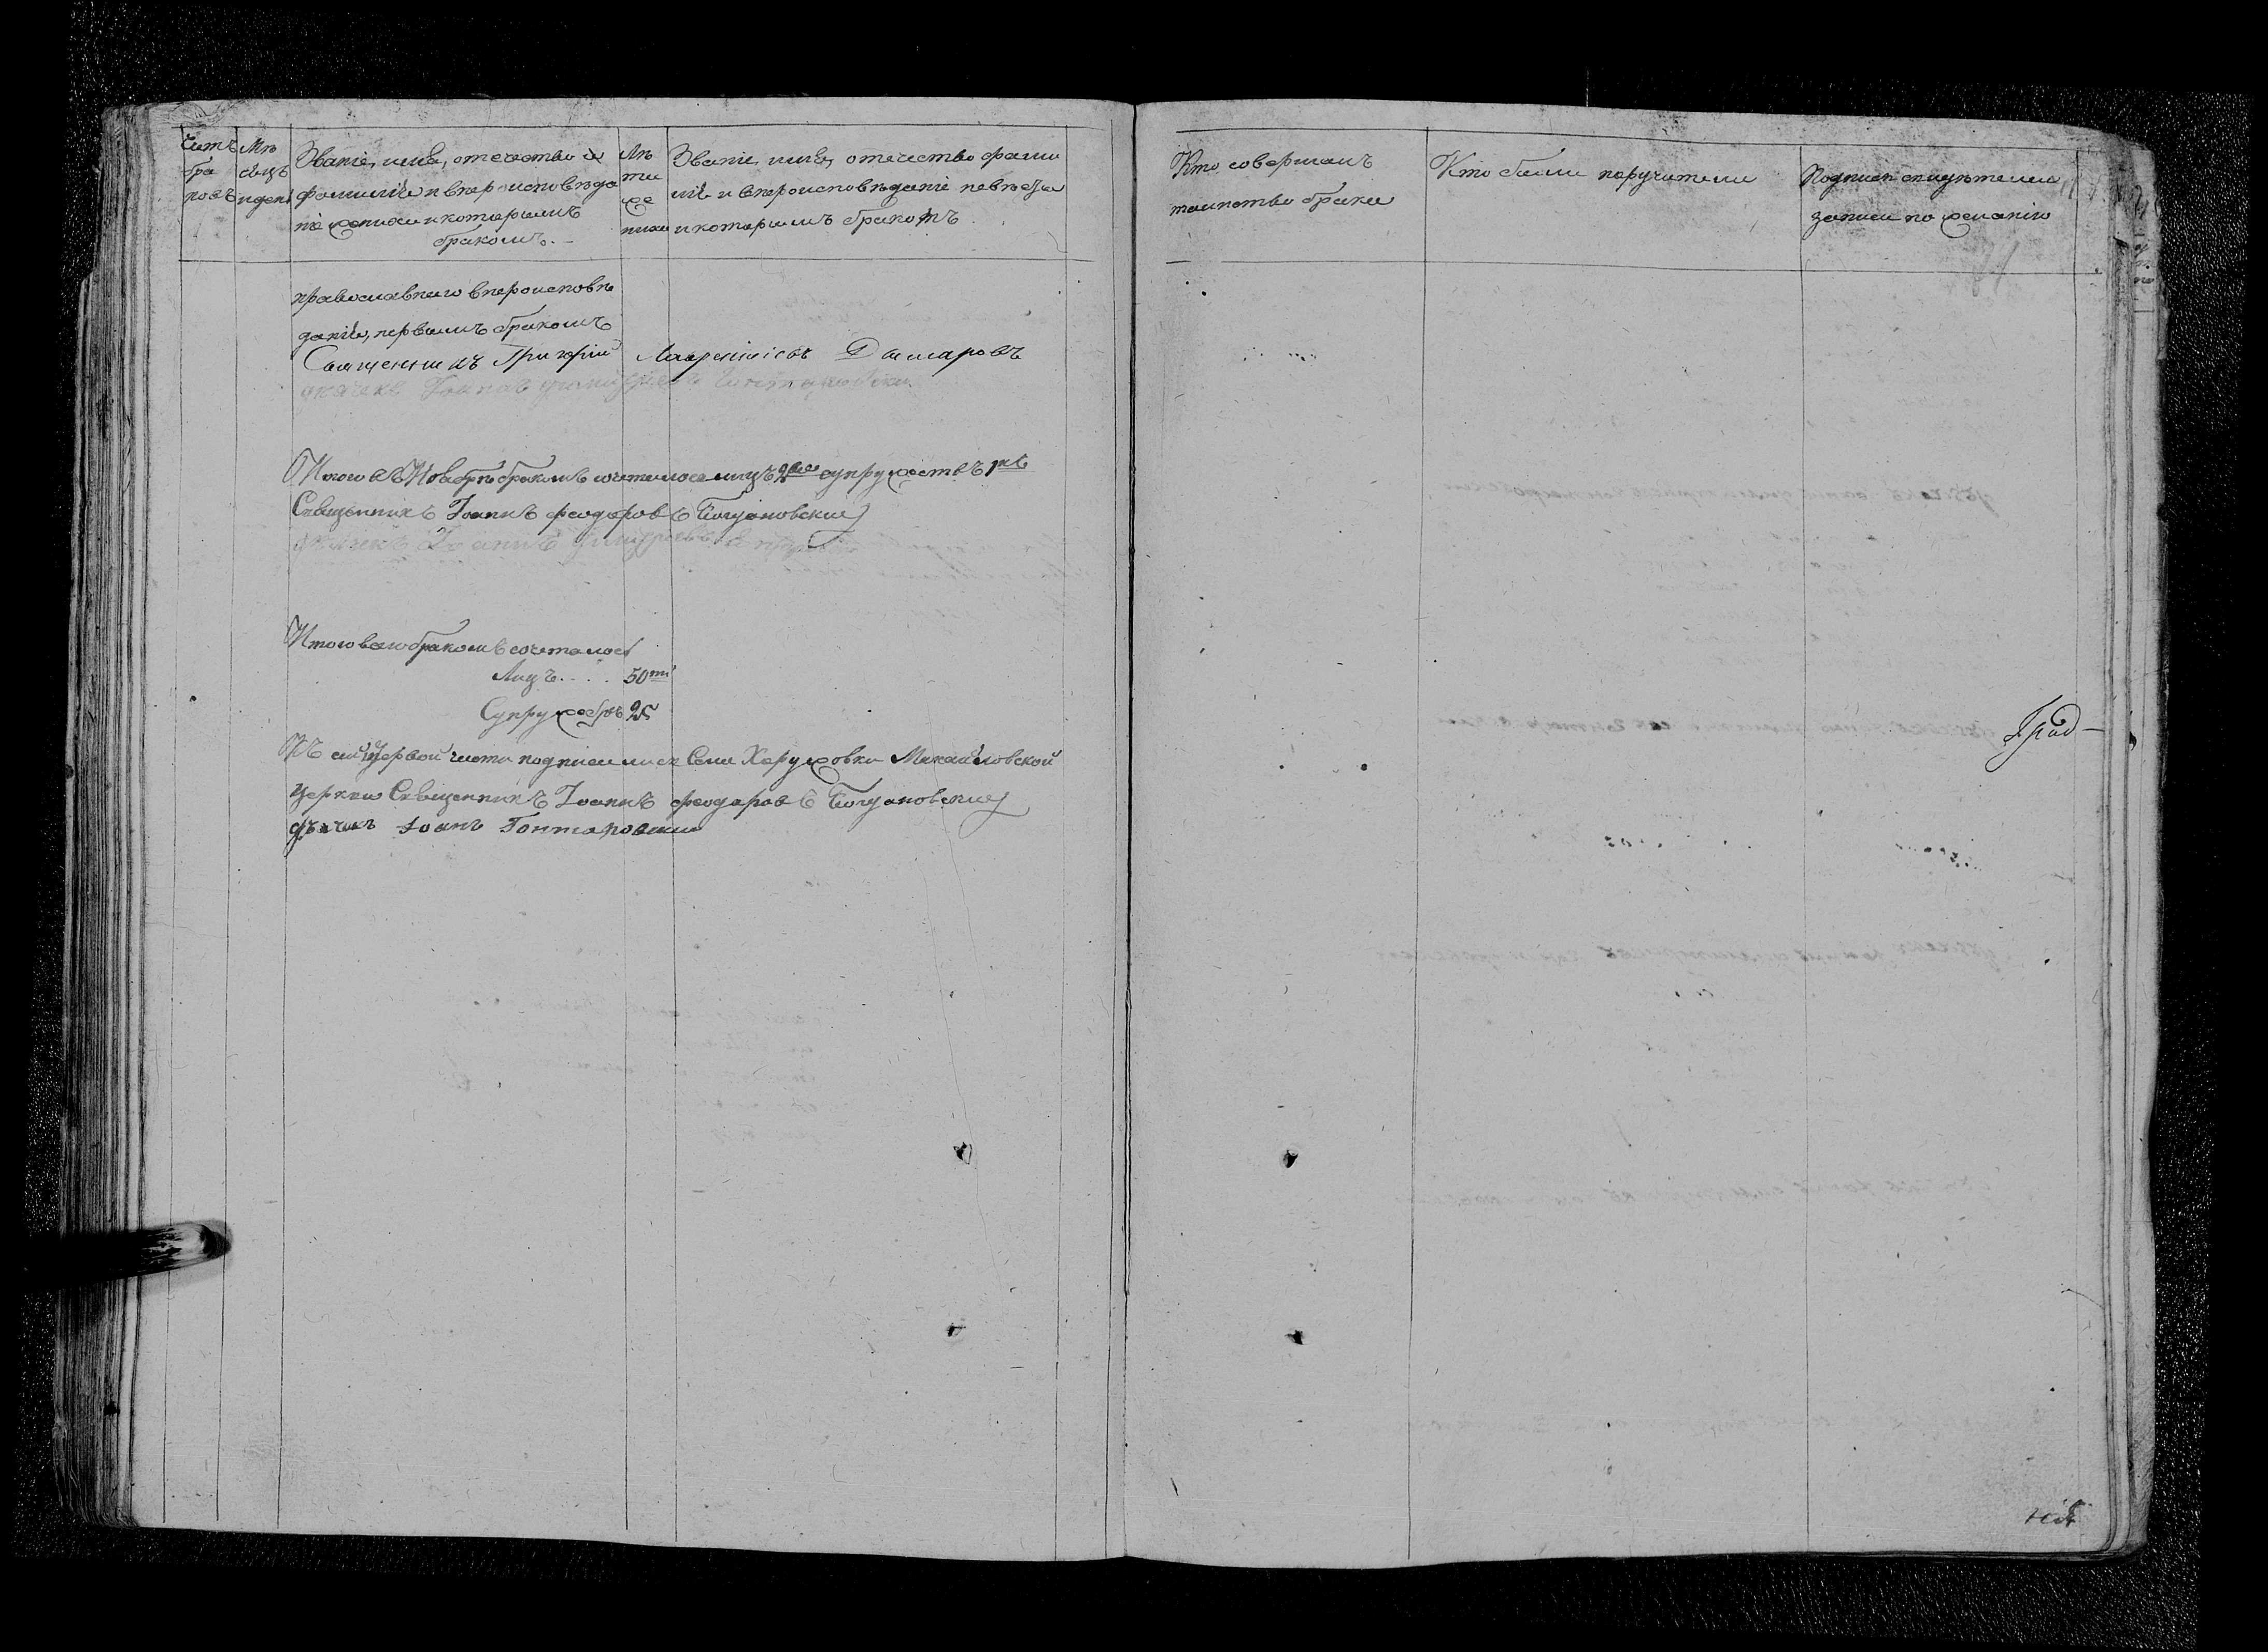 Счетъ бра ковъ
Мѣ сяцъ и день
Званіе, имя, отечество и
фамилія и вѣроисповѣда
ніе жениха и которымъ
бракомъ.
Лѣ та же ниха
Званіе, имя, отечество фами
лія и вѣроисповѣданіе невѣсты
и которымъ бракомъ
Кто совершалъ
таинство брака
Кто были поручители
Подписи свидѣтелей
записи по желанію
православнаго вѣроисповѣ
данія, первымъ бракомъ
Священникъ Григорій
дячекъ Іоаннъ
Итого въ Ноябрѣ бракомъ сочеталося лицъ 2вое супружествъ 1нъ
Священникъ Іоаннъ Феодоровъ Богдановскій
дячекъ Іоаннъ
Итого всего бракомъ сочеталось
Лицъ.... 50ти
Супружебствъ 25
Къ сей Первой части подписались Села Харужовки Михайловской
Церкви Священникъ Іоаннъ Феодоровъ Богдановскій
дьячокъ Іоанъ Гонтаровский